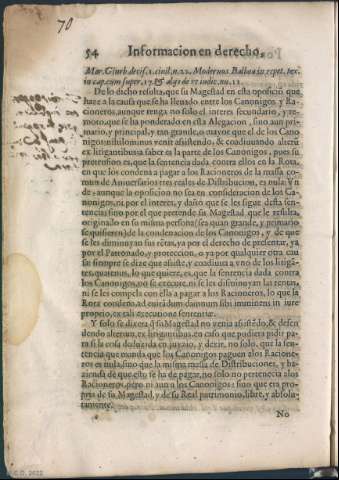 70
54 Informacion en derecho,
Mar. Giurb decis. 1. ciuil. n. 22. Modernos Balboa in repet. tex.
in cap. cum super. 17. & alys de re iudic. no. 11.
De lo dicho resulta, que su Magestad en esta oposicion que
haze a la causa que se ha lleuado entre los Canonigos y Ra-
cioneros, aunque tenga no solo el interes secundario, y re-
moto, que se ha ponderado en esta Alegacion, sino aun pri-
mario, y principal, y tan grande, o mayor que el de los Cano
nigos: nihilominus venit assistendo, & coadiuuando alteru
ex litigantibus a saber es la parte de los Canonigos, pues su
pretension es, que la sentencia dada contra ellos en la Rota,
en que los condena a pagar a los Racioneros de la massa co-
mun de Aniuersarios tres reales de Distribucion, es nula: Y n
de, aunque la oposicion no sea en consideracion de los Ca-
nonigos, ni por el interes, y daño que se les sigue desta sen-
tencia: sino por el que pretende su Magestad que le resulta,
originado en su misma persona (sea quan grande, y primario
se quisiere) de la condenacion de los Canonigos, y de que
se les disminuyan sus rentas, ya por el derecho de presentar, ya
por el Patronado, y proteccion, o ya por qualquier otra cau
sa: siempre se dize que assiste, y coadiuua a vno de los litigã-
tes, quatenus, lo que quiere, es, que la sentencia dada contra
los Canonigos, no se execute, ni se les disminuyan las rentas,
ni se les compela con ella a pagar a los Racioneros, lo que la
Rota condeno, ad euitandum damnum sibi imminens in iure
proprio, ex tali executione sententiae.
Y solo se dixera que su Magestad no venia assistẽdo, & defen
dendo alterum, ex litigantibus, en caso que pudiera pidir pa-
ra si la cosa deduzida en juyzio, y dezir, no solo, que la sen-
tencia que manda que los Canonigos paguen a los Racione-
ros es nula, sino que la misma massa de Distribuciones, y ha-
zienda de que esto se ha de pagar, no solo no pertenecia a los
Racioneros, pero ni aun a los Canonigos: sino que era pro-
pria de su Magestad, y de su Real patrimonio, libre, y absolu-
tamente.
No